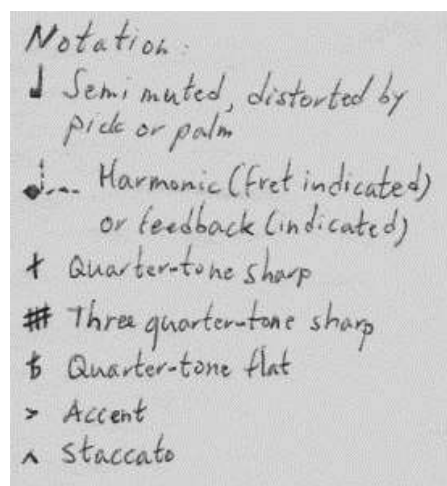 Notation:
Semi muted, distorted by
pick or palm
Harmonic (fret indicated)
or feedback (indicated)
Quarter-tone sharp
Three quarter-tone sharp
Quarter-tone flat
> Accent
^ Staccato